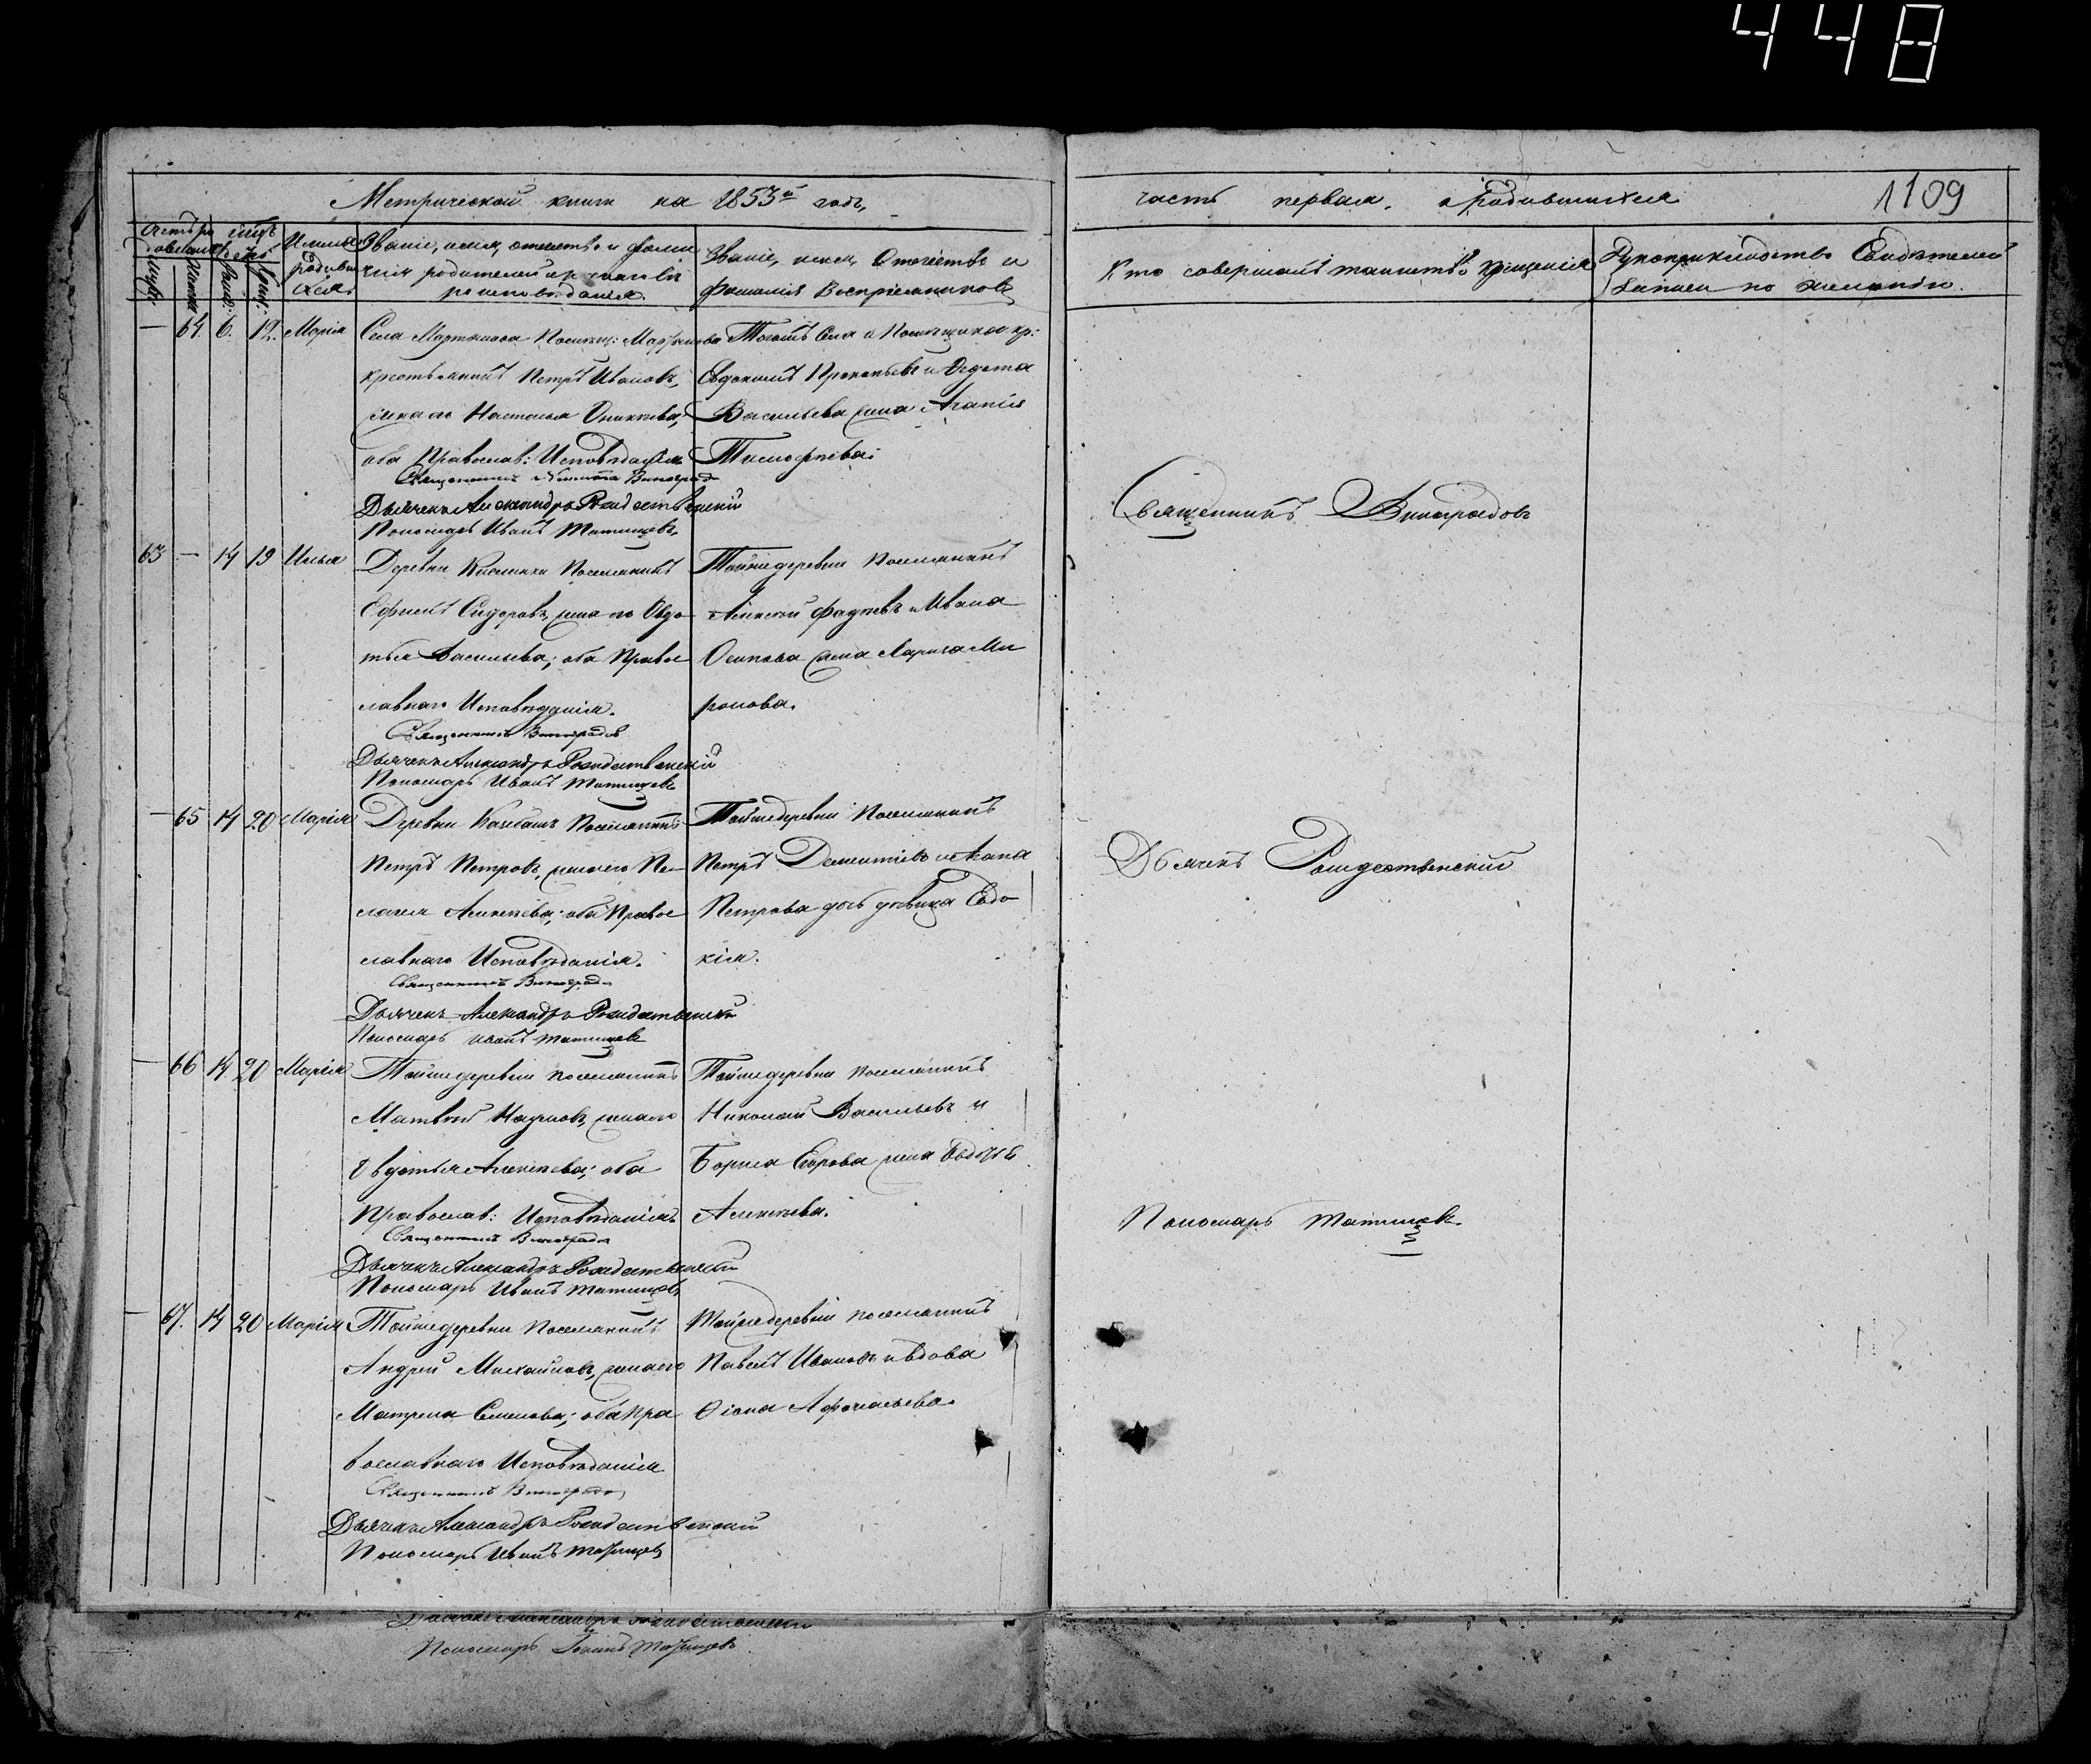 448
Метрической книги на 1853й годъ,
часть первая, о родившихся
1109
Имена родившихся
Званіе, имя, отчество и фамилія родителей и какого вѣроисповѣданія.
Званіе, имя, Отчество и фамилія Воспріемниковъ
Кто совершалъ таинство крещенія
Рукоприкладство Свидѣтелей записи по желанію.
— 64. 6. 12. Марія
Села Помѣщ:
крестьянинъ Петръ Ивановъ,
жена его Настасья
оба Православ: Исповѣданія
Священникъ Никита Виноградовъ
Дьячекъ Александръ Рождественскій
Пономарь Иванъ
Тогожъ Села и Помѣщика кр:
Евдокимъ Прокопьевъ и Ѳедота
Васильева жена Агапія
Тимофеева.
Священникъ Виноградовъ
63 — 14 19 Илья
Деревни поселянинъ
Ефимъ Сидоровъ, жена его Овдо
тья Васильева; оба Правос
лавнаго Исповѣданія.
Священникъ Виноградовъ
Дьячекъ Александръ Рождественскій
Пономарь Иванъ
Тойжедеревни поселянинъ
Алексѣй Фадѣевъ и Ивана
Осипова жена Ми
ронова.
— 65 14 20 Марія
Деревни поселянинъ
Петръ Петровъ, жена его Пе
лагея Алексѣева; оба Правос
лавнаго Исповѣданія.
Священникъ Виноградовъ
Дьячекъ Александръ Рождественскій
Пономарь Иванъ
Тойжедеревни поселянинъ
Петръ Дементьевъ и
Петрова дочь дѣвица Евдо
кія.
Дьячекъ Рождественскій
— 66 14 20 Марія
Тойжедеревни поселянинъ
Матвѣй Наумовъ, жена его
Овдотья Алексѣева; оба
Православ: Исповѣданія.
Священникъ Виноградовъ
Дьячекъ Александръ Рождественскій
Пономарь Иванъ
Тойжедеревни поселянинъ
Николай Васильевъ и
Бориса жена
Алексѣева.
Пономарь
— 67. 14 20 Марія
Тойжедеревни поселянинъ
Андрей Михайловъ, жена его
Матрена Семенова; оба пра
вославнаго Исповѣданія
Священникъ Виноградовъ
Дьячекъ Александръ Рождественскій
Пономарь Иванъ
Тойжедеревни поселянинъ
Павелъ Ивановъ и вдова
Афонасьева.
Пономарь